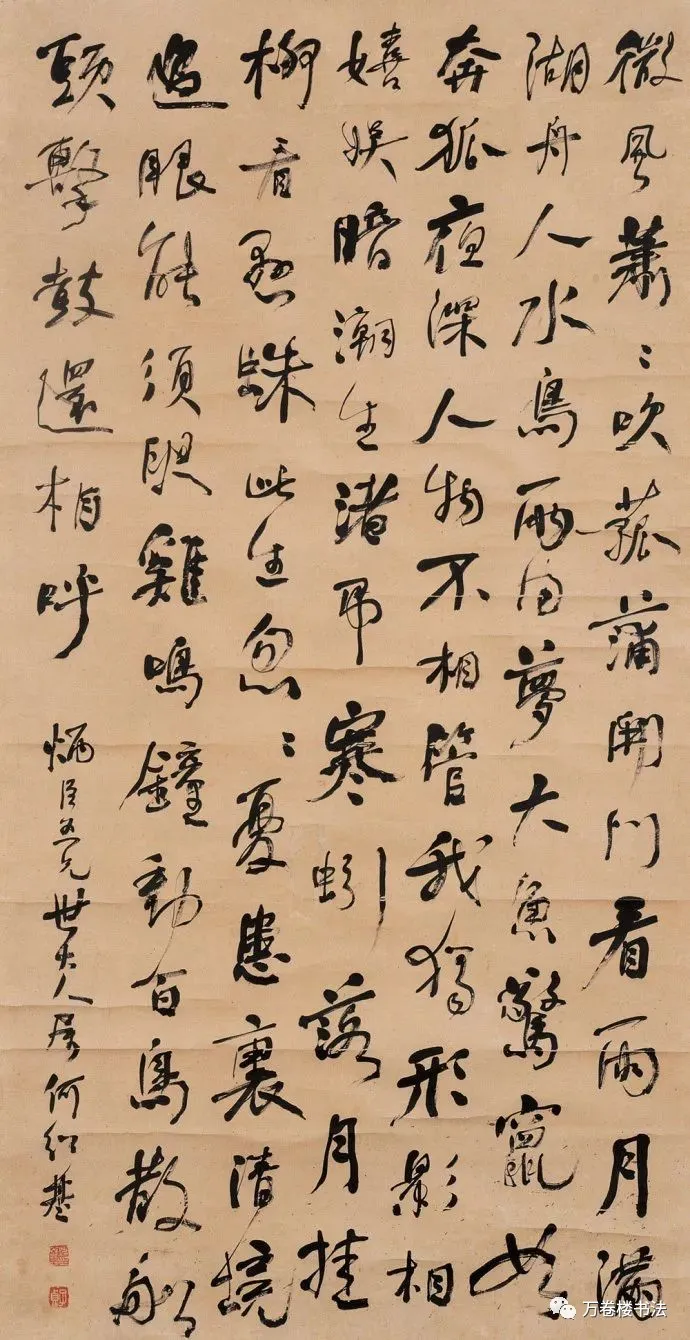 微風蕭〻吹菰蒲開門看雨月滿
湖舟人水鳥兩同夢大魚驚竄如
奔狐夜深人物不相管我獨形影相
嬉娛暗潮生渚弔寒蚓落月挂
柳看懸蛛此生忽〻憂患裏清境
過眼能須臾雞鳴鐘動百鳥散船
頭擊鼓還相呼
炳臣五兄世大人屬何紹基
万卷楼书法